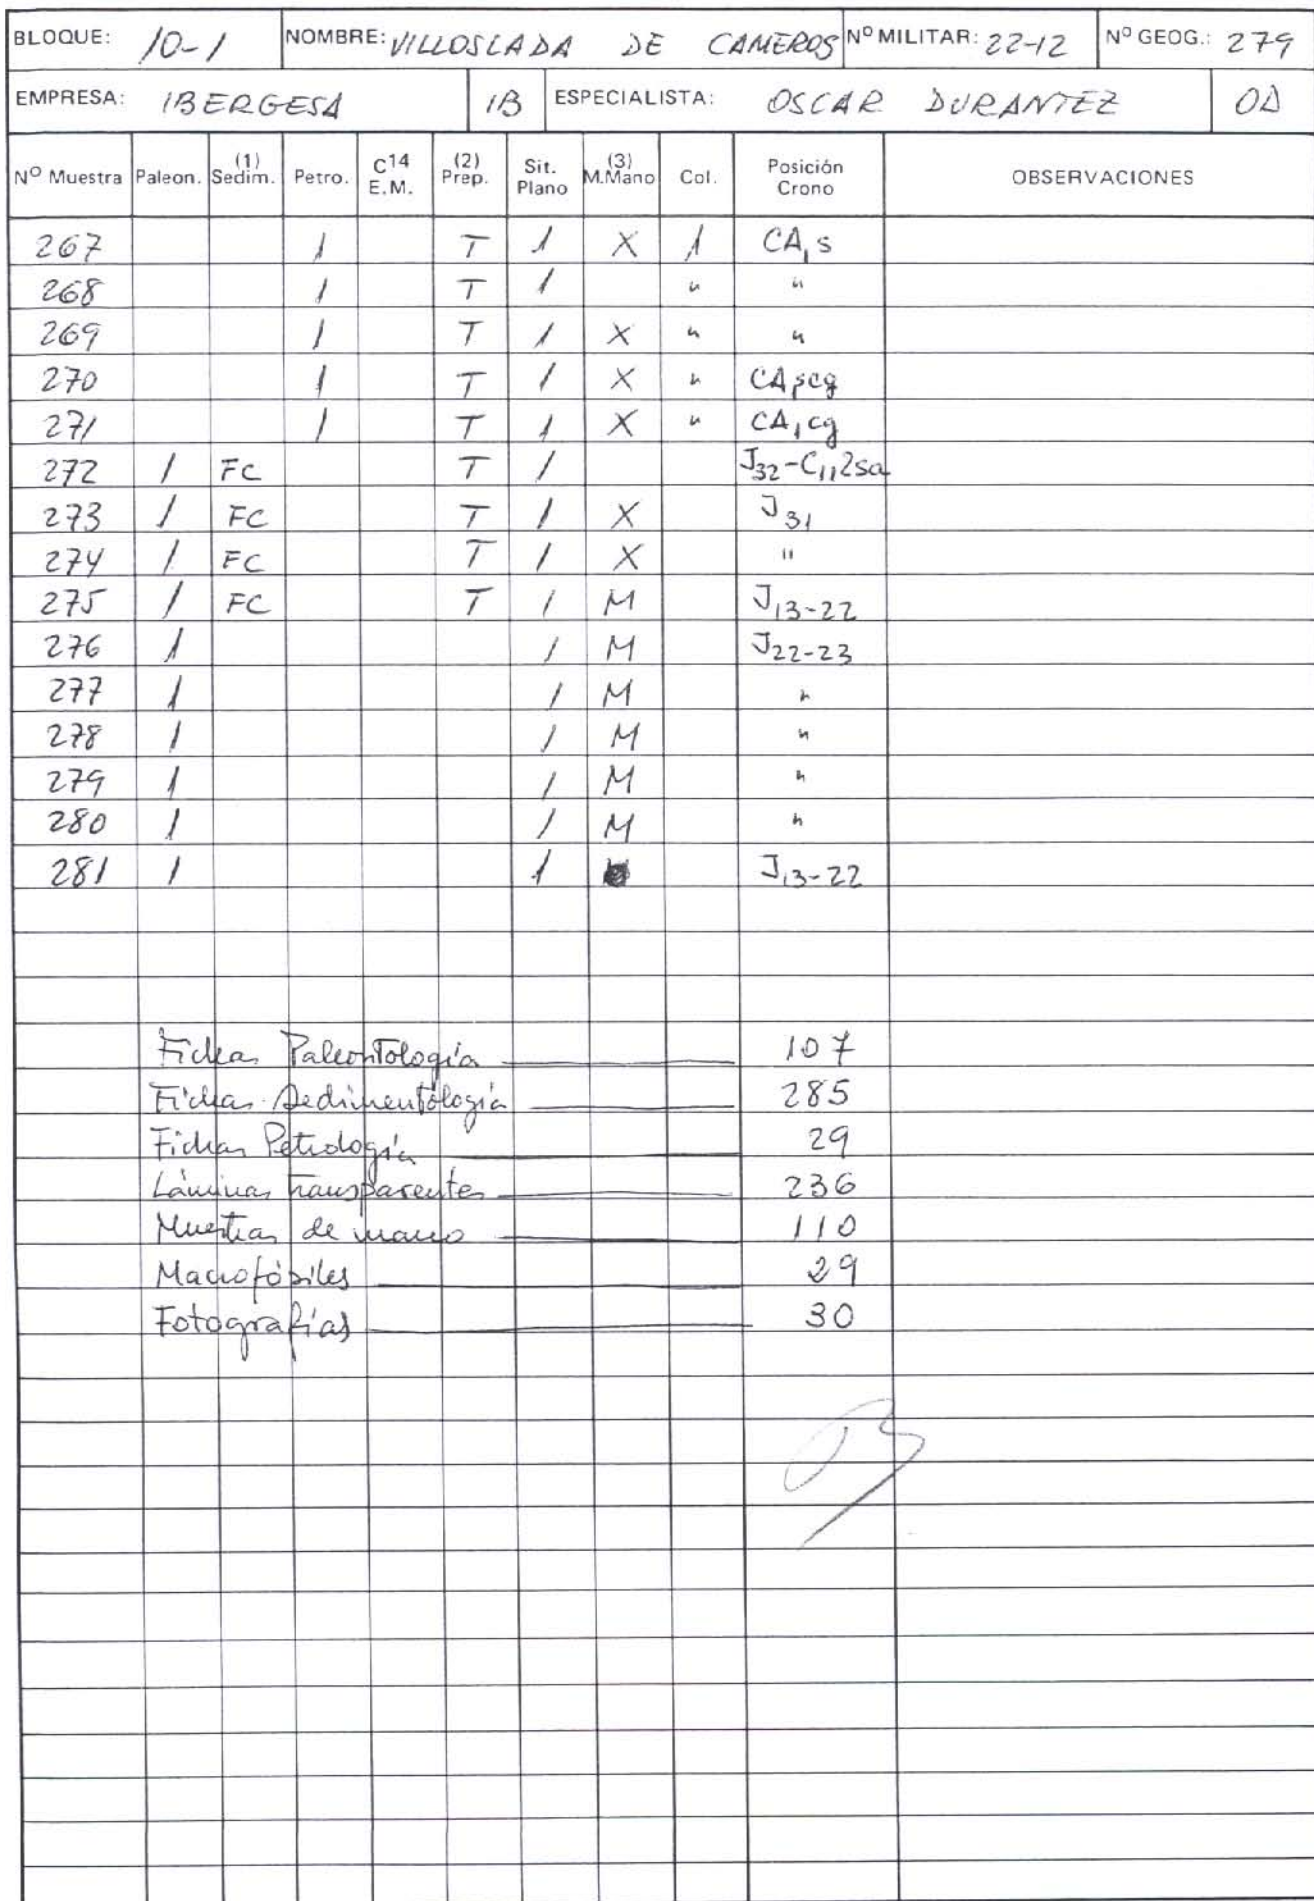 BLOQUE: 10-1 NOMBRE: VILLOSLADA DE CAMEROS Nº MILITAR: 22-12 Nº GEOG.: 279
EMPRESA: IBERGESA IB ESPECIALISTA: OSCAR DURANTEZ OD
Nº Muestra Paleon. (1) Sedim. Petro. C14 E.M. (2) Prep. Sit. Plano (3) M.Mano Col. Posición Crono OBSERVACIONES
267 1 T 1 X 1 CA1s
268 1 T 1 " "
269 1 T 1 X " "
270 1 T 1 X "
271 1 T 1 X " CA1cg
272 1 FC T 1 J32-C112sa
273 1 FC T 1 X J31
274 1 FC T 1 X "
275 1 FC T 1 M J13-22
276 1 1 M J22-23
277 1 1 M "
278 1 1 M "
279 1 1 M "
280 1 1 M "
281 1 1 J13-22
Fichas Paleontología 107
Fichas Sedimentología 285
Fichas Petrología 29
Láminas transparentes 236
Muestras de mano 110
Macrofósiles 29
Fotografías 30